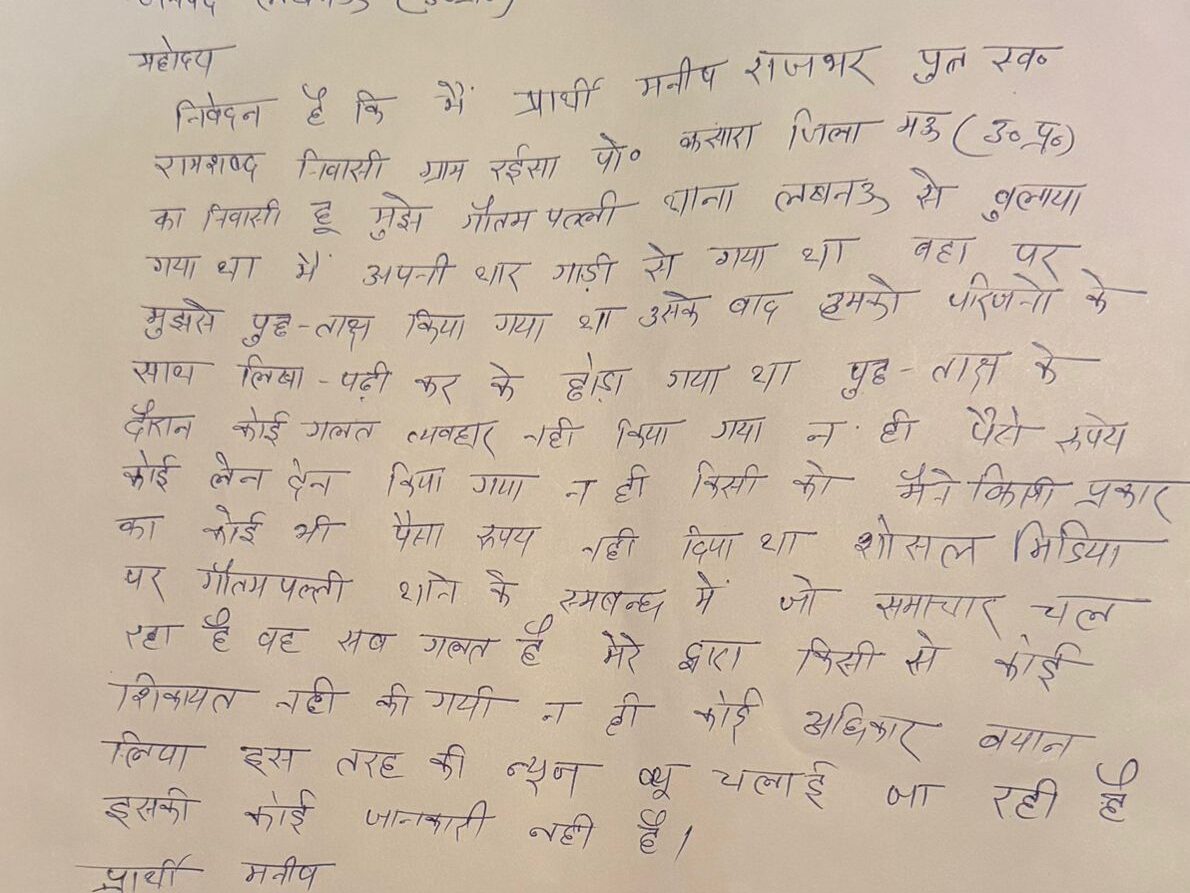 जनपद लखनऊ (उ०प्र०)
महोदय
निवेदन है कि मैं प्रार्थी मनीष राजभर पुत्र स्व०
रामशब्द निवासी ग्राम रईसा पो० कसारा जिला मऊ (उ०प्र०)
का निवासी हू मुझे गौतम पल्ली थाना लखनऊ से बुलाया
गया था मैं अपनी थार गाड़ी से गया था वहा पर
मुझसे पुछ-ताक्ष किया गया था उसके बाद हमको परिजनो के
साथ लिखा-पढ़ी कर के छोड़ा गया था पुछ-ताक्ष के
दौरान कोई गलत व्यवहार नही किया गया न ही पैसे रूपये
कोई लेन देन किया गया न ही किसी को मैने किसी प्रकार
का कोई भी पैसा रूपय नही दिया था शोसल मिडिया
पर गौतमपल्ली थाने के स्मबन्ध में जो समाचार चल
रहा है वह सब गलत है मेरे द्वारा किसी से कोई
शिकायत नही की गयी न ही कोई अधिकार बयान
लिया इस तरह की न्यूज क्यू चलाई जा रही है
इसकी कोई जानकारी नही है।
प्रार्थी मनीष